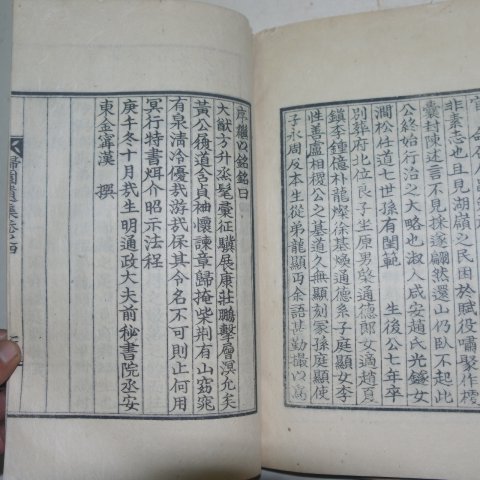 非素志也且見湖嶺之民困於賦役嘯聚作梗
囊封陳述言不見採遂翩然還山仍臥不起此
公終始行治之大略也淑人咸安趙氏光鎰女
澗松任道七世孫有閨範 生後公七年卒
別葬府北位良子坐原男棨通德郎女適趙
鎮李鍾億朴龍燦徐基煥通德系子庭顯女李
性善盧相稷公之墓道久無顯刻冢孫庭顯使
子永周反本生從弟龍顯丙余語甚勤撮以爲
序繼以銘銘曰
大猷方升丞髦彙征驥展康莊鵬擊層溟允矣
黃公飬道含貞袖懷諫章歸掩柴荆有山窈窕
有泉清冷優哉游哉保其令名不可則止何用
冥行特書炳介昭示法程
庚午冬十月我生明通政大夫前秘書院丞安
東金寗漢 撰
歸園遺集卷之四